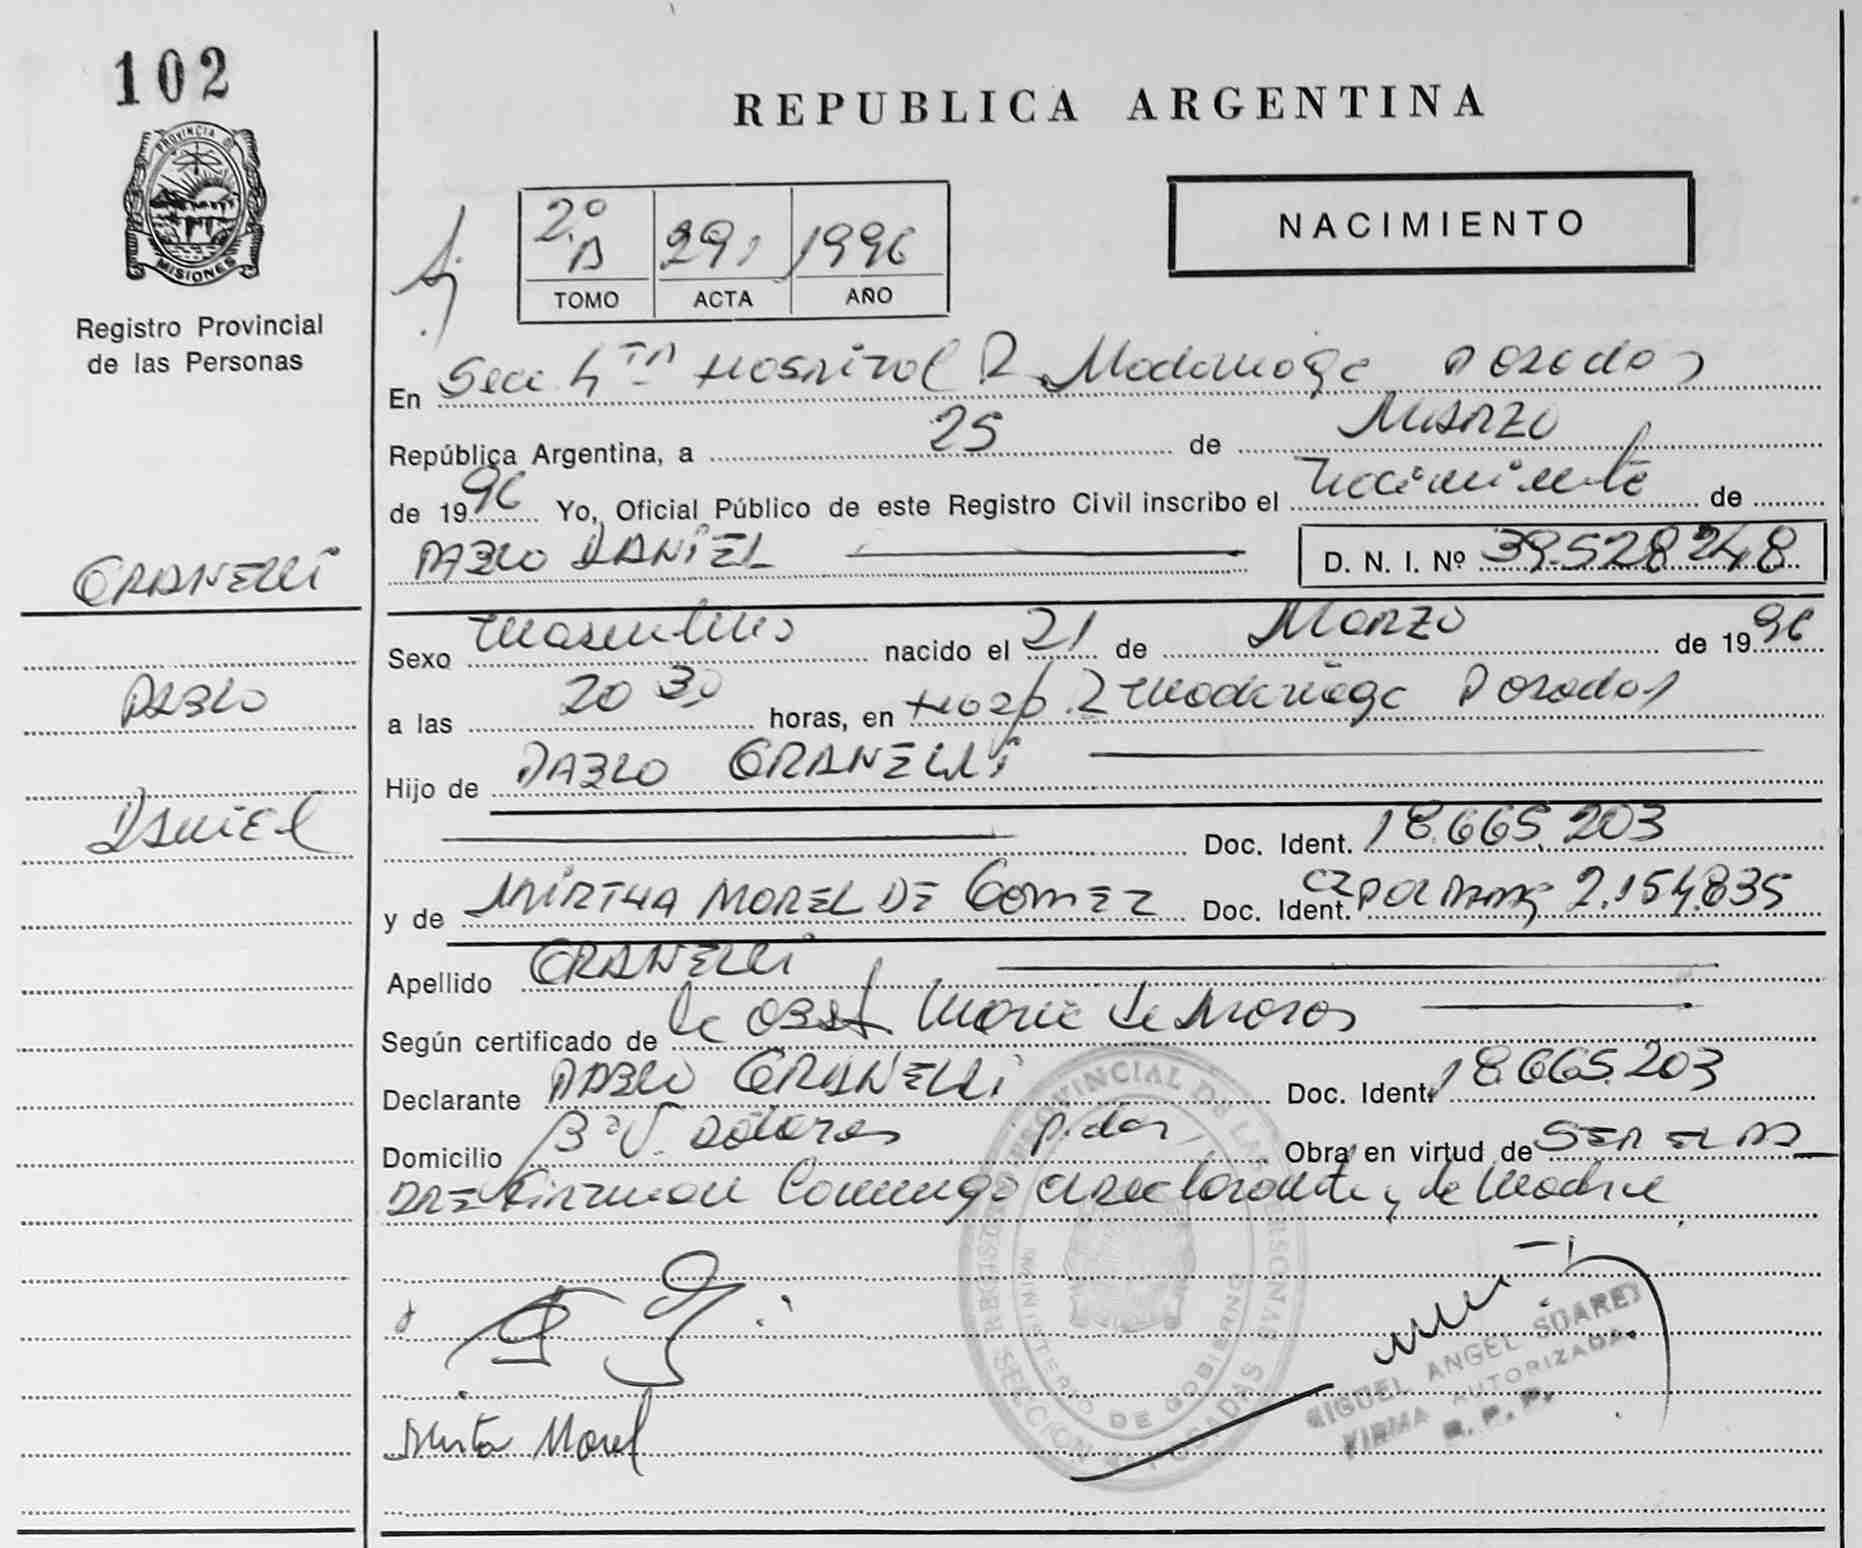 102
PROVINCIA DE
MISIONES
Registro Provincial
de las Personas
GRANELLI
PABLO
DANIEL
REPUBLICA ARGENTINA
NACIMIENTO
2º 291 1996
TOMO ACTA AÑO
En Secc 4ta Hospital R. Madariaga Posadas
República Argentina, a 25 de MARZO
de 1996 Yo, Oficial Público de este Registro Civil inscribo el nacimiento de
PABLO DANIEL D. N. I. Nº 39.528.248
Sexo masculino nacido el 21 de MARZO de 1996
a las 20 30 horas, en Hosp. R Madariaga Posadas
Hijo de PABLO GRANELLI
Doc. Ident. 18.665.203
y de MIRTHA MOREL DE GOMEZ Doc. Ident. 2.154.835
Apellido GRANELLI
Según certificado de la Obst. Maria de Moras
Declarante PABLO GRANELLI Doc. Ident. 18.665.203
Domicilio Bº V. Pdas Obra en virtud de SER EL PA
DRE Firman Conmigo el declarante y la Madre
Mirta Morel
REGISTRO PROVINCIAL DE LAS PERSONAS
MINISTERIO DE GOBIERNO
SECCION POSADAS
MIGUEL ANGEL SUAREZ
FIRMA AUTORIZADA
R. P. P.